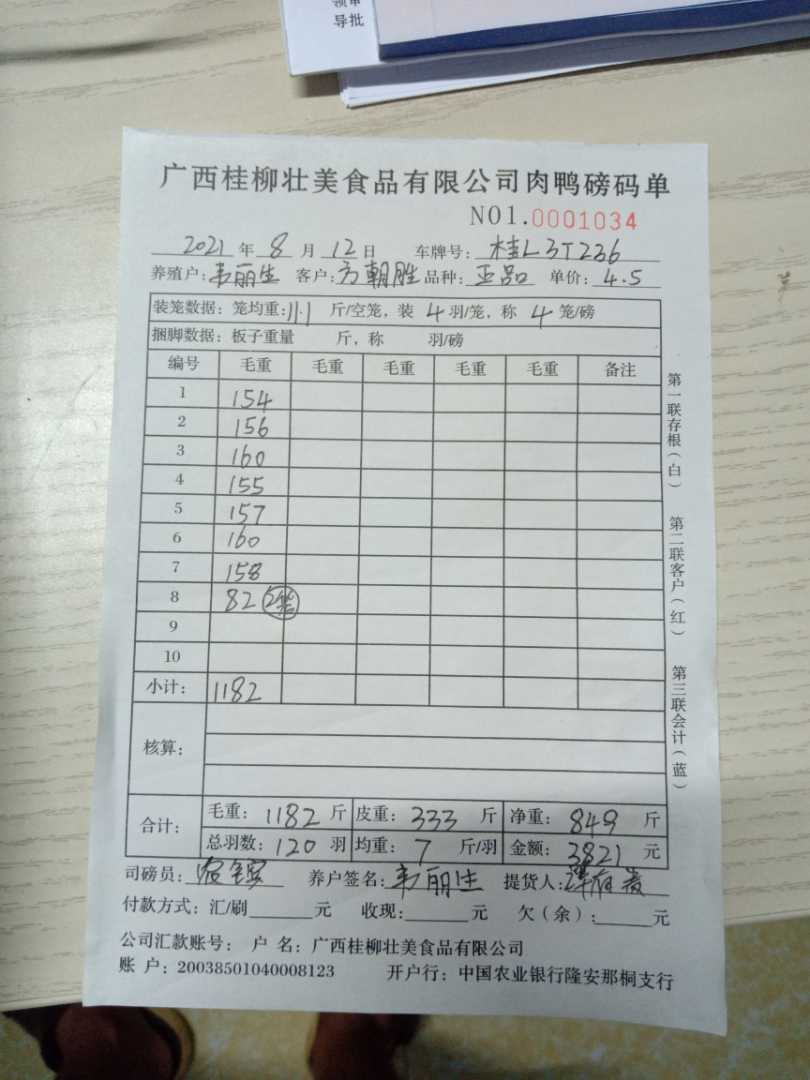 领审
导批
广西桂柳壮美食品有限公司肉鸭磅码单
NO1.0001034
2021年8月12日 车牌号：桂L3T236
养殖户：韦丽生 客户：方朝胜 品种：亚品 单价：4.5
装笼数据：笼均重：11.1 斤/空笼，装 4 羽/笼，称 4 笼/磅
捆脚数据：板子重量 斤，称 羽/磅
编号 毛重 毛重 毛重 毛重 毛重 备注
1 154
2 156
3 160
4 155
5 157
6 160
7 158
8 82 2笼
9
10
小计：1182
核算：
合计：毛重：1182斤 皮重：333斤 净重：849斤
总羽数：120羽 均重：7斤/羽 金额：3821元
司磅员： 养户签名：韦丽生 提货人：
付款方式：汇/刷 元 收现： 元 欠（余）： 元
公司汇款账号： 户 名：广西桂柳壮美食品有限公司
账 户：20038501040008123 开户行：中国农业银行隆安那桐支行
第一联存根（白） 第二联客户（红） 第三联会计（蓝）